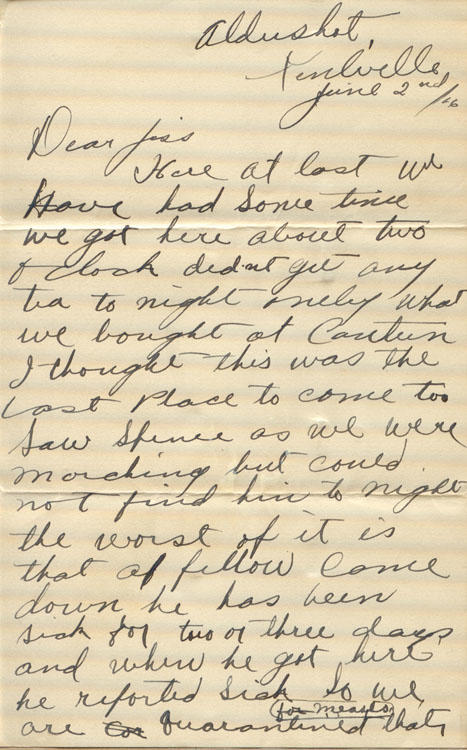 Aldushot,
Kentville
June 2nd/16
Dear Jiss
Here at last we
Have had some time
we got here about two
o clock didnt get any
tea to night onely what
we bought at Canteen
I thought this was the
Last Place to come too
Saw Spence as we were
marching but could
not find him to night
the worst of it is
that a fellow came
down he has been
sick for two or three days
and when he got here
he reported sick So we
(for measles)
are quarantined that,